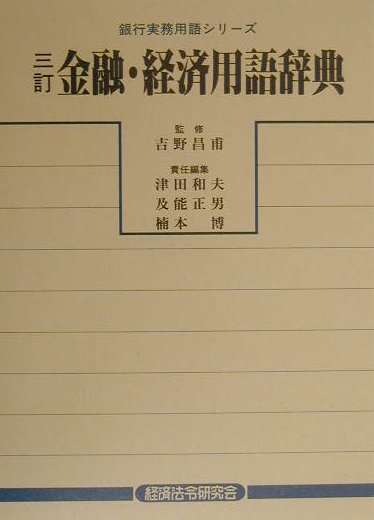 銀行実務用語シリーズ
三訂 金融・経済用語辞典
監修
吉野昌甫
責任編集
津田和夫
及能正男
楠本博
経済法令研究会